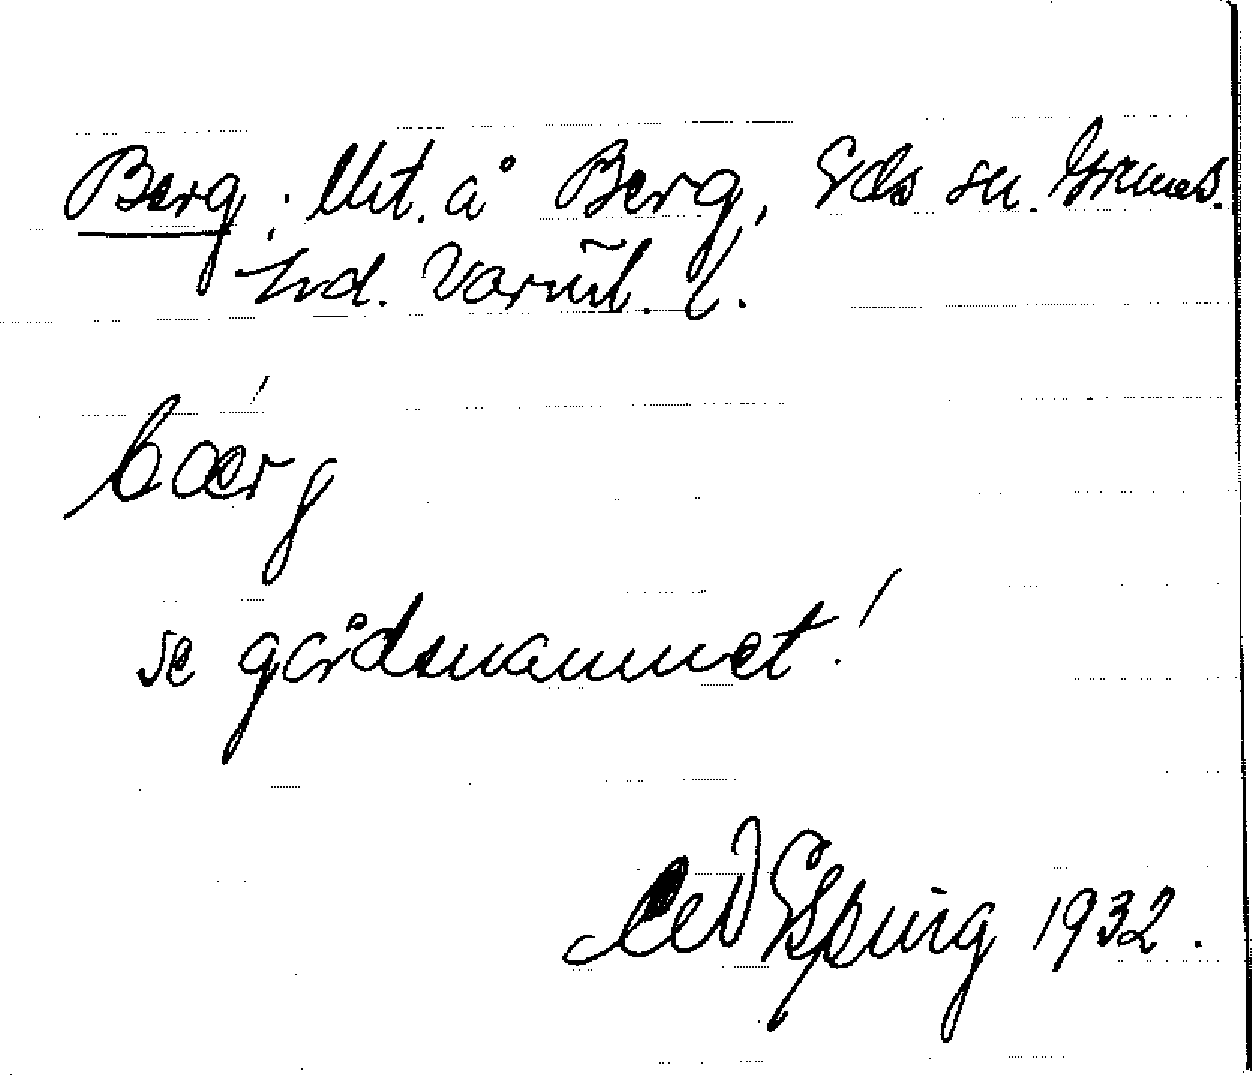 Berg. Utt. å Berg, Eds sn. Grums.
hd. Värml. l.
bærg
se gårdsnamnet!
Espling 1932.